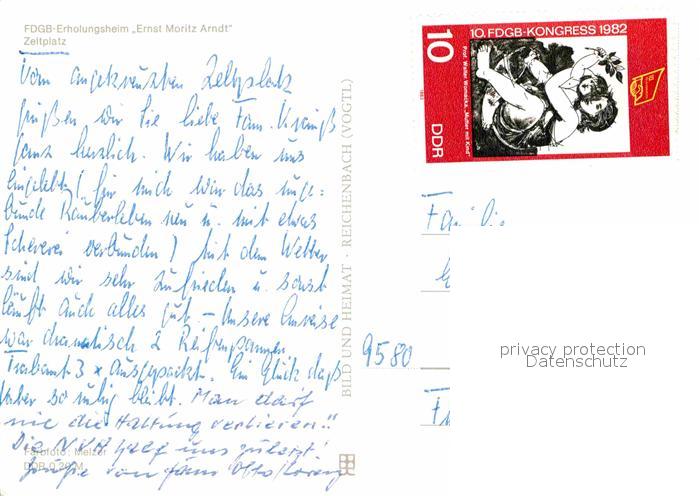 FDGB-Erholungsheim „Ernst Moritz Arndt“
Zeltplatz
Vom angekreuzten Zeltplatz
grüßen wir Sie liebe Fam.
ganz herzlich. Wir haben uns
eingelebt (für mich war das unge=
bunde Räuberleben neu u. mit etwas
Schererei verbunden) Mit dem Wetter
sind wir sehr zufrieden u. sonst
läuft auch alles gut. – Unsere Anreise
war dramatisch 2 Reifenpannen.
Trabant 3 x ausgepackt. Ein Glück daß
so ruhig bleibt. Man darf
nie die Haltung verlieren!!
Die NVA half uns zuletzt!
Grüße von Fam. Otto
Farbfoto: Melzer
DDR 0,20 M
BILD UND HEIMAT · REICHENBACH (VOGTL)
10
10. FDGB-KONGRESS 1982
Prof. Walter Womacka, „Mutter mit Kind“
1982
DDR
9580
privacy protection
Datenschutz